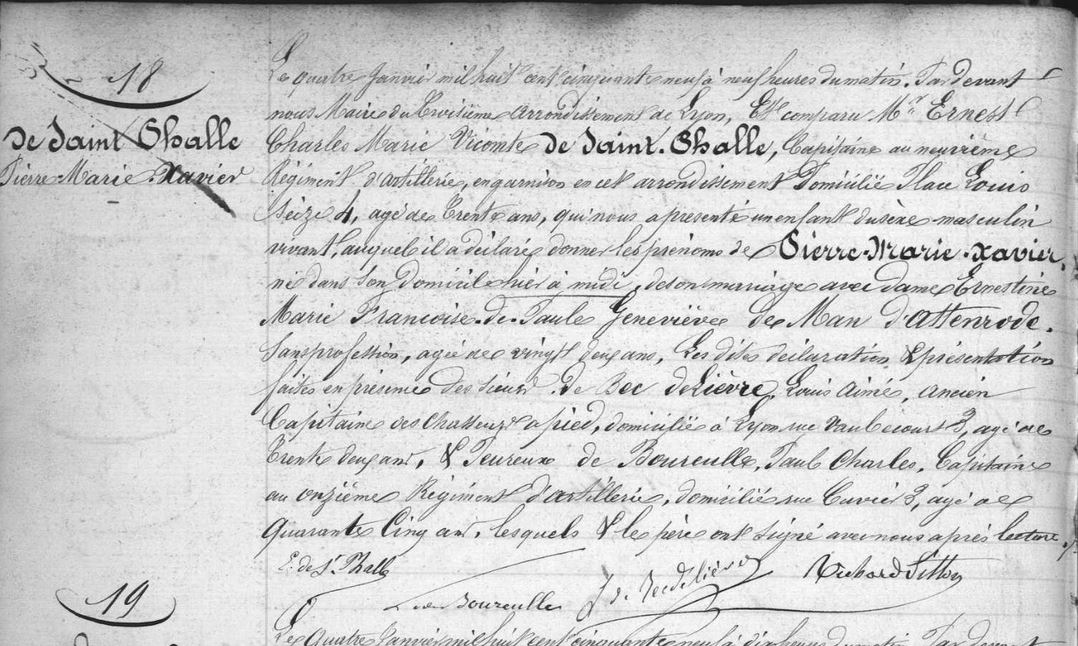 18
de Saint Phalle
Pierre Marie Xavier
Le quatre Janvier mil huit cent cinquante neuf à neuf heures du matin. Par devant
nous Maire du troisième arrondissement de Lyon, Est comparu Mr. Ernest
Charles Marie Vicomte de Saint. Phalle, Capitaine au neuvième
Régiment d'artillerie, en garnison en cet arrondissement Domicilié Place Louis
Seize 4, agé de Trente ans, qui nous a présenté un enfant du sexe masculin
vivant, auquel il a déclaré donner les prénoms de Pierre. Marie. Xavier.
né dans son domicile hier à midi, de son mariage avec dame Ernestine
Marie Françoise. de. Paule Geneviève de Man d'attenrode.
Sans profession, agée de vingt deux ans, Les dites déclaration & présentation
faites en présence des sieurs de Bec deLièvre, Louis Aimé, ancien
Capitaine des Chasseurs a pied, domicilié à Lyon rue Vaubecourt 3, agé de
Trente deux ans, & Jeureux de Boureulle, Paul Charles, Capitaine
au onzième Régiment d'artillerie, domicilié rue Cuvier 3, agé de
Quarante Cinq ans, lesquels & le père ont signé avec nous après lecture.
E. de St Phalle
de Boureulle
de Becdelièvre
19
Le Quatre Janvier mil huit cent cinquante neuf à dix heures du matin Par devant